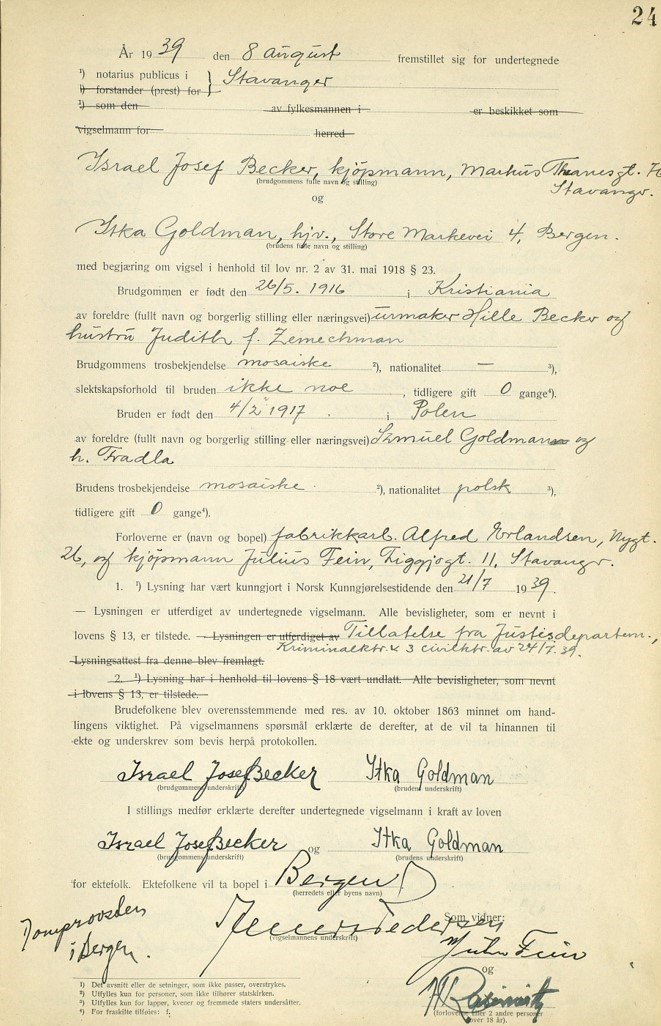 24
År 1939 den 8 august fremstillet sig for undertegnede
¹) notarius publicus i } Stavanger
¹) forstander (prest) for
¹) som den av fylkesmannen i er beskikket som
vigselmann for herred
Israel Josef Becker, kjöpmann, Markus Thranesgt.
Stavanger.
(brudgommens fulle navn og stilling)
og
Itka Goldman, hjv., Store Markevei 4, Bergen.
(brudens fulle navn og stilling)
med begjæring om vigsel i henhold til lov nr. 2 av 31. mai 1918 § 23.
Brudgommen er født den 26/5. 1916 i Kristiania
av foreldre (fullt navn og borgerlig stilling eller næringsvei) urmaker Hille Becker og
hustru Judith f. Zemechman
Brudgommens trosbekjendelse mosaiske ²), nationalitet — ³),
slektskapsforhold til bruden ikke noe, tidligere gift 0 gange⁴).
Bruden er født den 4/2 1917. i Polen
av foreldre (fullt navn og borgerlig stilling eller næringsvei) Szmuel Goldman og
h. Fradla
Brudens trosbekjendelse mosaiske ²), nationalitet polsk ³),
tidligere gift 0 gange⁴).
Forloverne er (navn og bopel) fabrikkarb. Alfred Erlandsen, Nygt.
26, og kjöpmann Julius Fein, Figgjogt. 11, Stavanger.
1. ¹) Lysning har vært kunngjort i Norsk Kunngjørelsestidende den 21/7 1939.
— Lysningen er utferdiget av undertegnede vigselmann. Alle bevisligheter, som er nevnt i
lovens § 13, er tilstede. — Lysningen er utferdiget av Tillatelse fra Justisdepartem.,
Kriminalktr. & 3 civilktr. av 24/7.39.
Lysningsattest fra denne blev fremlagt.
2. ¹) Lysning har i henhold til lovens § 18 vært undlatt. Alle bevisligheter, som nevnt
i lovens § 13, er tilstede.
Brudefolkene blev overensstemmende med res. av 10. oktober 1863 minnet om hand-
lingens viktighet. På vigselmannens spørsmål erklærte de derefter, at de vil ta hinannen til
ekte og underskrev som bevis herpå protokollen.
Israel Josef Becker Itka Goldman
(brudgommens underskrift) (brudens underskrift)
I stillings medfør erklærte derefter undertegnede vigselmann i kraft av loven
Israel Josef Becker og Itka Goldman
(brudgommens underskrift) (brudens underskrift)
for ektefolk. Ektefolkene vil ta bopel i Bergen
(herredets eller byens navn)
Domprovsten
i Bergen.
Pedersen
(vigselmannens underskrift)
Som vidner:
Fein
og
Rabinowitz
(forloverne eller 2 andre personer
over 18 år).
¹) Det avsnitt eller de setninger, som ikke passer, overstrykes.
²) Utfylles kun for personer, som ikke tilhører statskirken.
³) Utfylles kun for lapper, kvener og fremmede staters undersåtter.
⁴) For fraskilte tilføies: f.